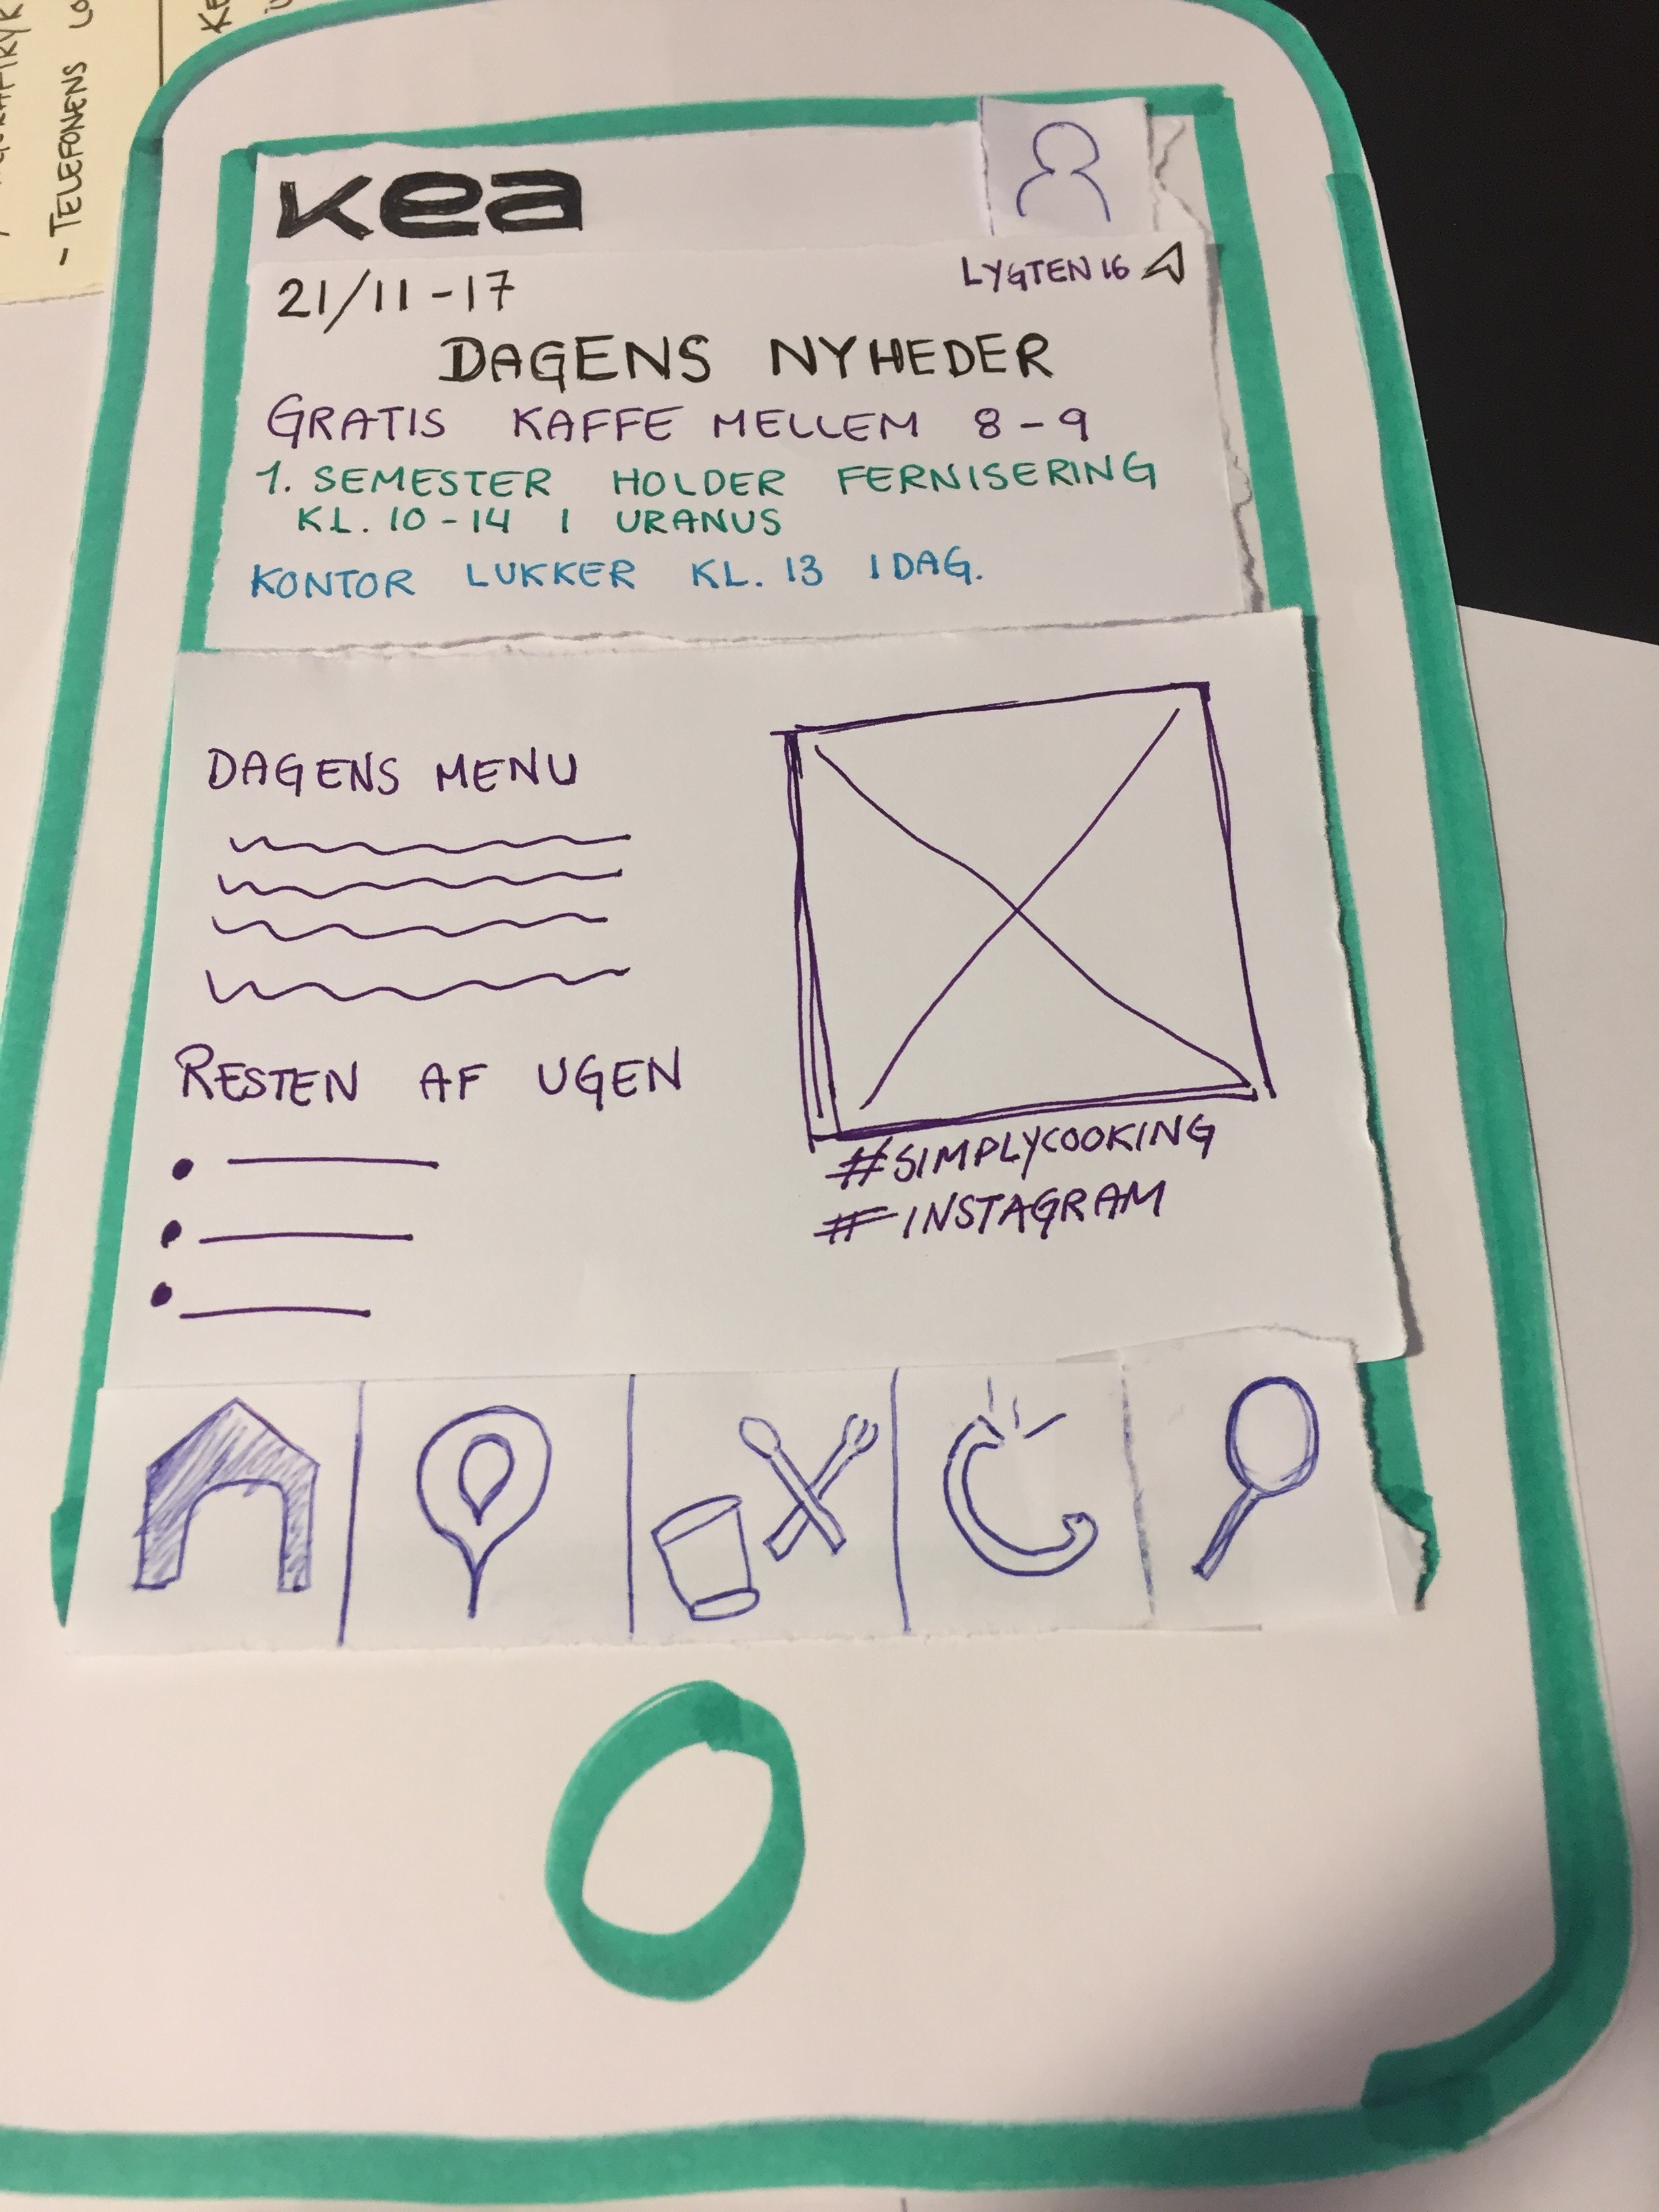 - TELEFONENS
kea
21/11-17
LYGTEN 16
DAGENS NYHEDER
GRATIS KAFFE MELLEM 8-9
1. SEMESTER HOLDER FERNISERING
KL. 10-14 I URANUS
KONTOR LUKKER KL. 13 IDAG.
DAGENS MENU
RESTEN AF UGEN
#SIMPLYCOOKING
#INSTAGRAM